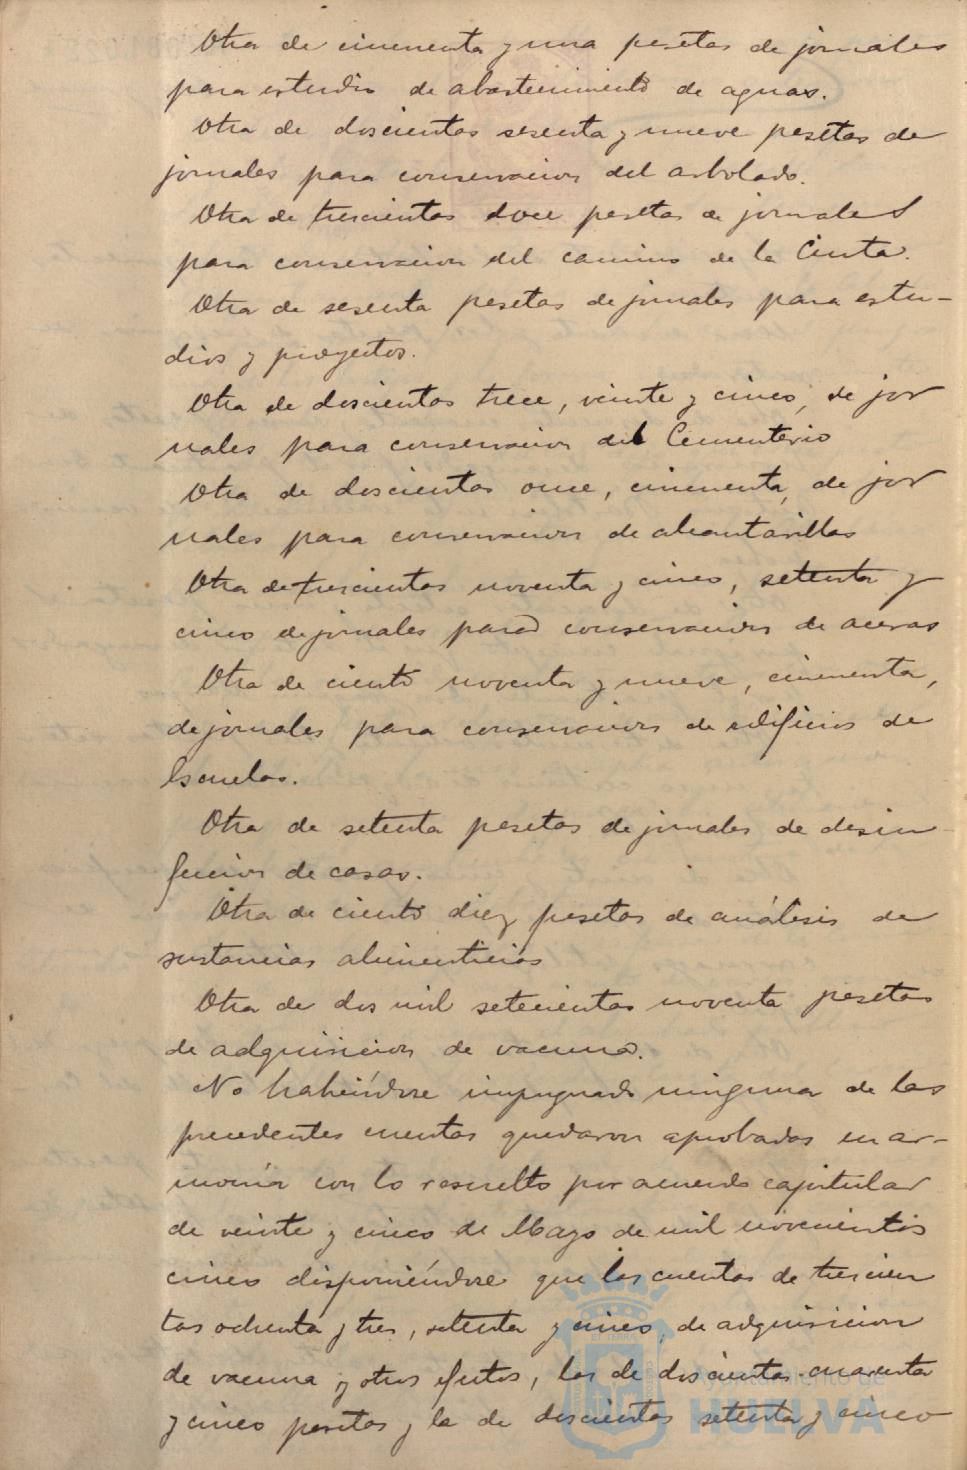 Otra de cincuenta y una pesetas de jornales
para estudio de abastecimiento de aguas.
Otra de doscientas sesenta y nueve pesetas de
jornales para conservacion del arbolado.
Otra de trescientas doce pesetas de jornales
para conservacion del camino de la Cinta.
Otra de sesenta pesetas de jornales para estu-
dios y proyectos.
Otra de doscientas trece, veinte y cinco, de jor
nales para conservacion del Cementerio
Otra de doscientas once, cincuenta, de jor
nales para conservacion de alcantarillas
Otra de trescientas noventa y cinco, setenta y
cinco de jornales para conservacion de aceras
Otra de ciento noventa y nueve, cincuenta,
de jornales para conservacion de edificios de
Escuelas.
Otra de setenta pesetas de jornales de desin-
feccion de casas.
Otra de ciento diez pesetas de análisis de
sustancias alimenticias
Otra de dos mil setecientas noventa pesetas
de adquisicion de vacuna.
No habiéndose impugnado ninguna de las
precedentes cuentas quedaron aprobadas en ar-
monía con lo resuelto por acuerdo capitular
de veinte y cinco de Mayo de mil novecientos
cinco disponiéndose que las cuentas de trescien
tas ochenta y tres, setenta y cinco, de adquisicion
de vacuna y otros efectos, las de doscientas cuarenta
y cinco pesetas y la de doscientas setenta y cinco
Ayuntamiento de
HUELVA